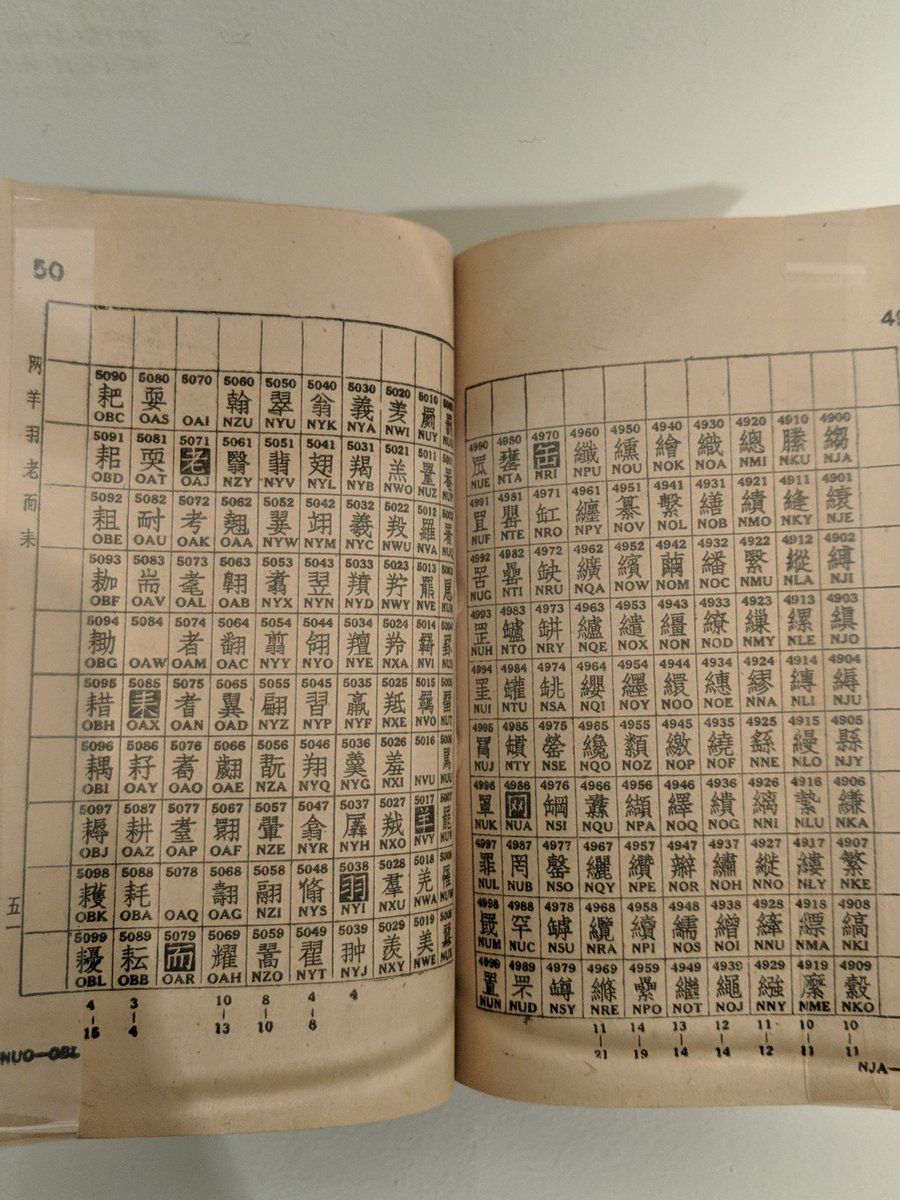 50
网羊羽老而耒
5090 5080 5070 5060 5050 5040 5030 5020 5010
耙 耍 翰 翠 翁 義 羑 罽
OBC OAS OAI NZU NYU NYK NYA NWI NUY
5091 5081 5071 5061 5051 5041 5031 5021 5011
耜 耎 老 翳 翡 翅 羯 羔 罿
OBD OAT OAJ NZY NYV NYL NYB NWO NUZ
5092 5082 5072 5062 5052 5042 5032 5022 5012
耐 考 翹 翣 翊 羲 羖 羅
OBE OAU OAK OAA NYW NYM NYC NWU NVA
5093 5083 5073 5063 5053 5043 5033 5023 5013
耞 耑 耄 翱 翥 翌 羵 羜 羆
OBF OAV OAL OAB NYX NYN NYD NWY NVE
5094 5084 5074 5064 5054 5044 5034 5024 5014
耡 者 翻 翦 翎 羶 羚 羇
OBG OAW OAM OAC NYY NYO NYE NXA NVI
5095 5085 5075 5065 5055 5045 5035 5025 5015
耤 耒 耆 翼 翩 習 羸 羝 羈
OBH OAX OAN OAD NYZ NYP NYF NXE NVO
5096 5086 5076 5066 5056 5046 5036 5026 5016
耦 耔 翽 翫 翔 羹 羞
OBI OAY OAO OAE NZA NYQ NYG NXI NVU
5097 5087 5077 5067 5057 5047 5037 5027 5017
耨 耕 耋 翾 翬 翕 羼 羢 羊
OBJ OAZ OAP OAF NZE NYR NYH NXO NVY
5098 5088 5078 5068 5058 5048 5038 5028 5018
耗 翿 翮 翛 羽 羣 羌
OBK OBA OAQ OAG NZI NYS NYI NXU NWA
5099 5089 5079 5069 5059 5049 5039 5029 5019
耰 耘 而 耀 翯 翟 翀 羨 美
OBL OBB OAR OAH NZO NYT NYJ NXY NWE
4–15 3–4 10–13 8–10 4–8 4
五一
NUO—OBL
4990 4980 4970 4960 4950 4940 4930 4920 4910 4900
罛 罋 缶 纖 纁 繪 織 總 縢 縐
NUE NTA NRI NPU NOU NOK NOA NMI NKU NJA
4991 4981 4971 4961 4951 4941 4931 4921 4911 4901
罝 罌 缸 纏 纂 繫 繕 績 縫 縗
NUF NTE NRO NPY NOV NOL NOB NMO NKY NJE
4992 4982 4972 4962 4952 4942 4932 4922 4912 4902
罟 罍 缺 纊 繽 繭 繙 繄 縱 縛
NUG NTI NRU NQA NOW NOM NOC NMU NLA NJI
4993 4983 4973 4963 4953 4943 4933 4923 4913 4903
罡 罏 纑 繾 繮 繚 繅 縲 縝
NUH NTO NRY NQE NOX NON NOD NMY NLE NJO
4994 4984 4974 4964 4954 4944 4934 4924 4914 4904
罣 罐 纓 繯 繐 繆 縳 縟
NUI NTU NSA NQI NOY NOO NOE NNA NLI NJU
4995 4985 4975 4965 4955 4945 4935 4925 4915 4905
罥 罃 纔 纇 繳 繞 繇 縵 縣
NUJ NTY NSE NQO NOZ NOP NOF NNE NLO NJY
4996 4986 4976 4966 4956 4946 4936 4926 4916 4906
罩 网 纛 纈 繹 繢 縭 縶 縑
NUK NUA NSI NQU NPA NOQ NOG NNI NLU NKA
4997 4987 4977 4967 4957 4947 4937 4927 4917 4907
罪 罔 罄 纚 纘 辮 繡 縰 縷 繁
NUL NUB NSO NQY NPE NOR NOH NNO NLY NKE
4998 4988 4978 4968 4958 4948 4938 4928 4918 4908
罭 罕 罅 纜 續 繻 繒 縴 縹 縞
NUM NUC NSU NRA NPI NOS NOI NNU NMA NKI
4999 4989 4979 4969 4959 4949 4939 4929 4919 4909
置 罘 罇 繼 繩 繈 縻 縠
NUN NUD NSY NRE NPO NOT NOJ NNY NME NKO
11–21 14–19 13–14 12–14 11–12 10–11 10–11
NJA—